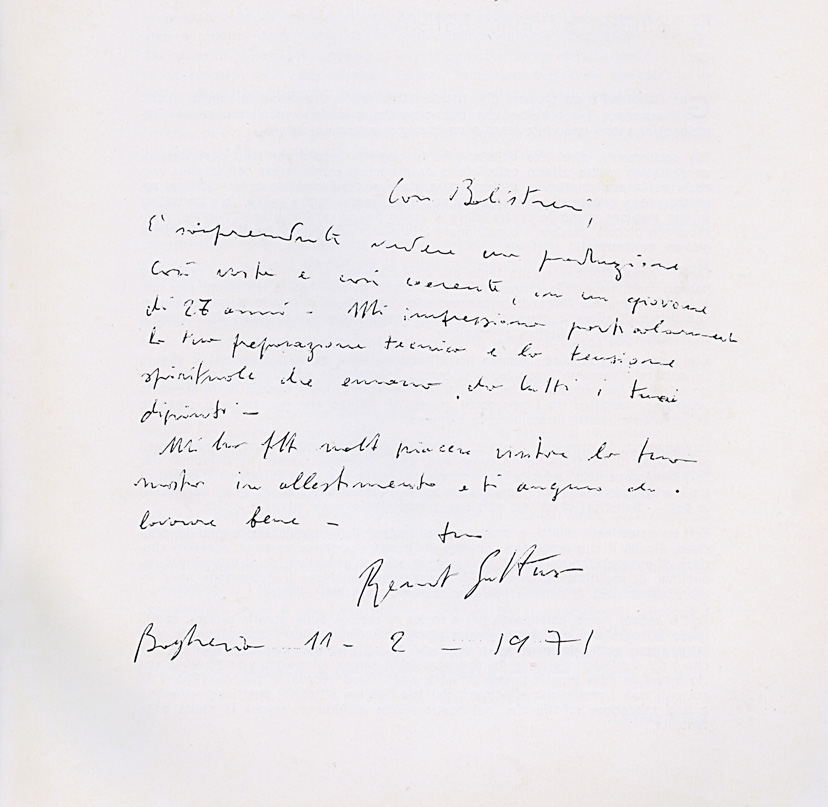 Caro Balistreri,
È sorprendente vedere una produzione
così vasta e così coerente, in un giovane
di 27 anni - Mi impressiona particolarmente
la tua preparazione tecnica e la tensione
spirituale che emana da tutti i tuoi
dipinti -
Mi ha fatto molto piacere visitare la tua
mostra in allestimento e ti auguro di
lavorare bene -
tuo
Renato Guttuso
Bagheria 11 - 2 - 1971